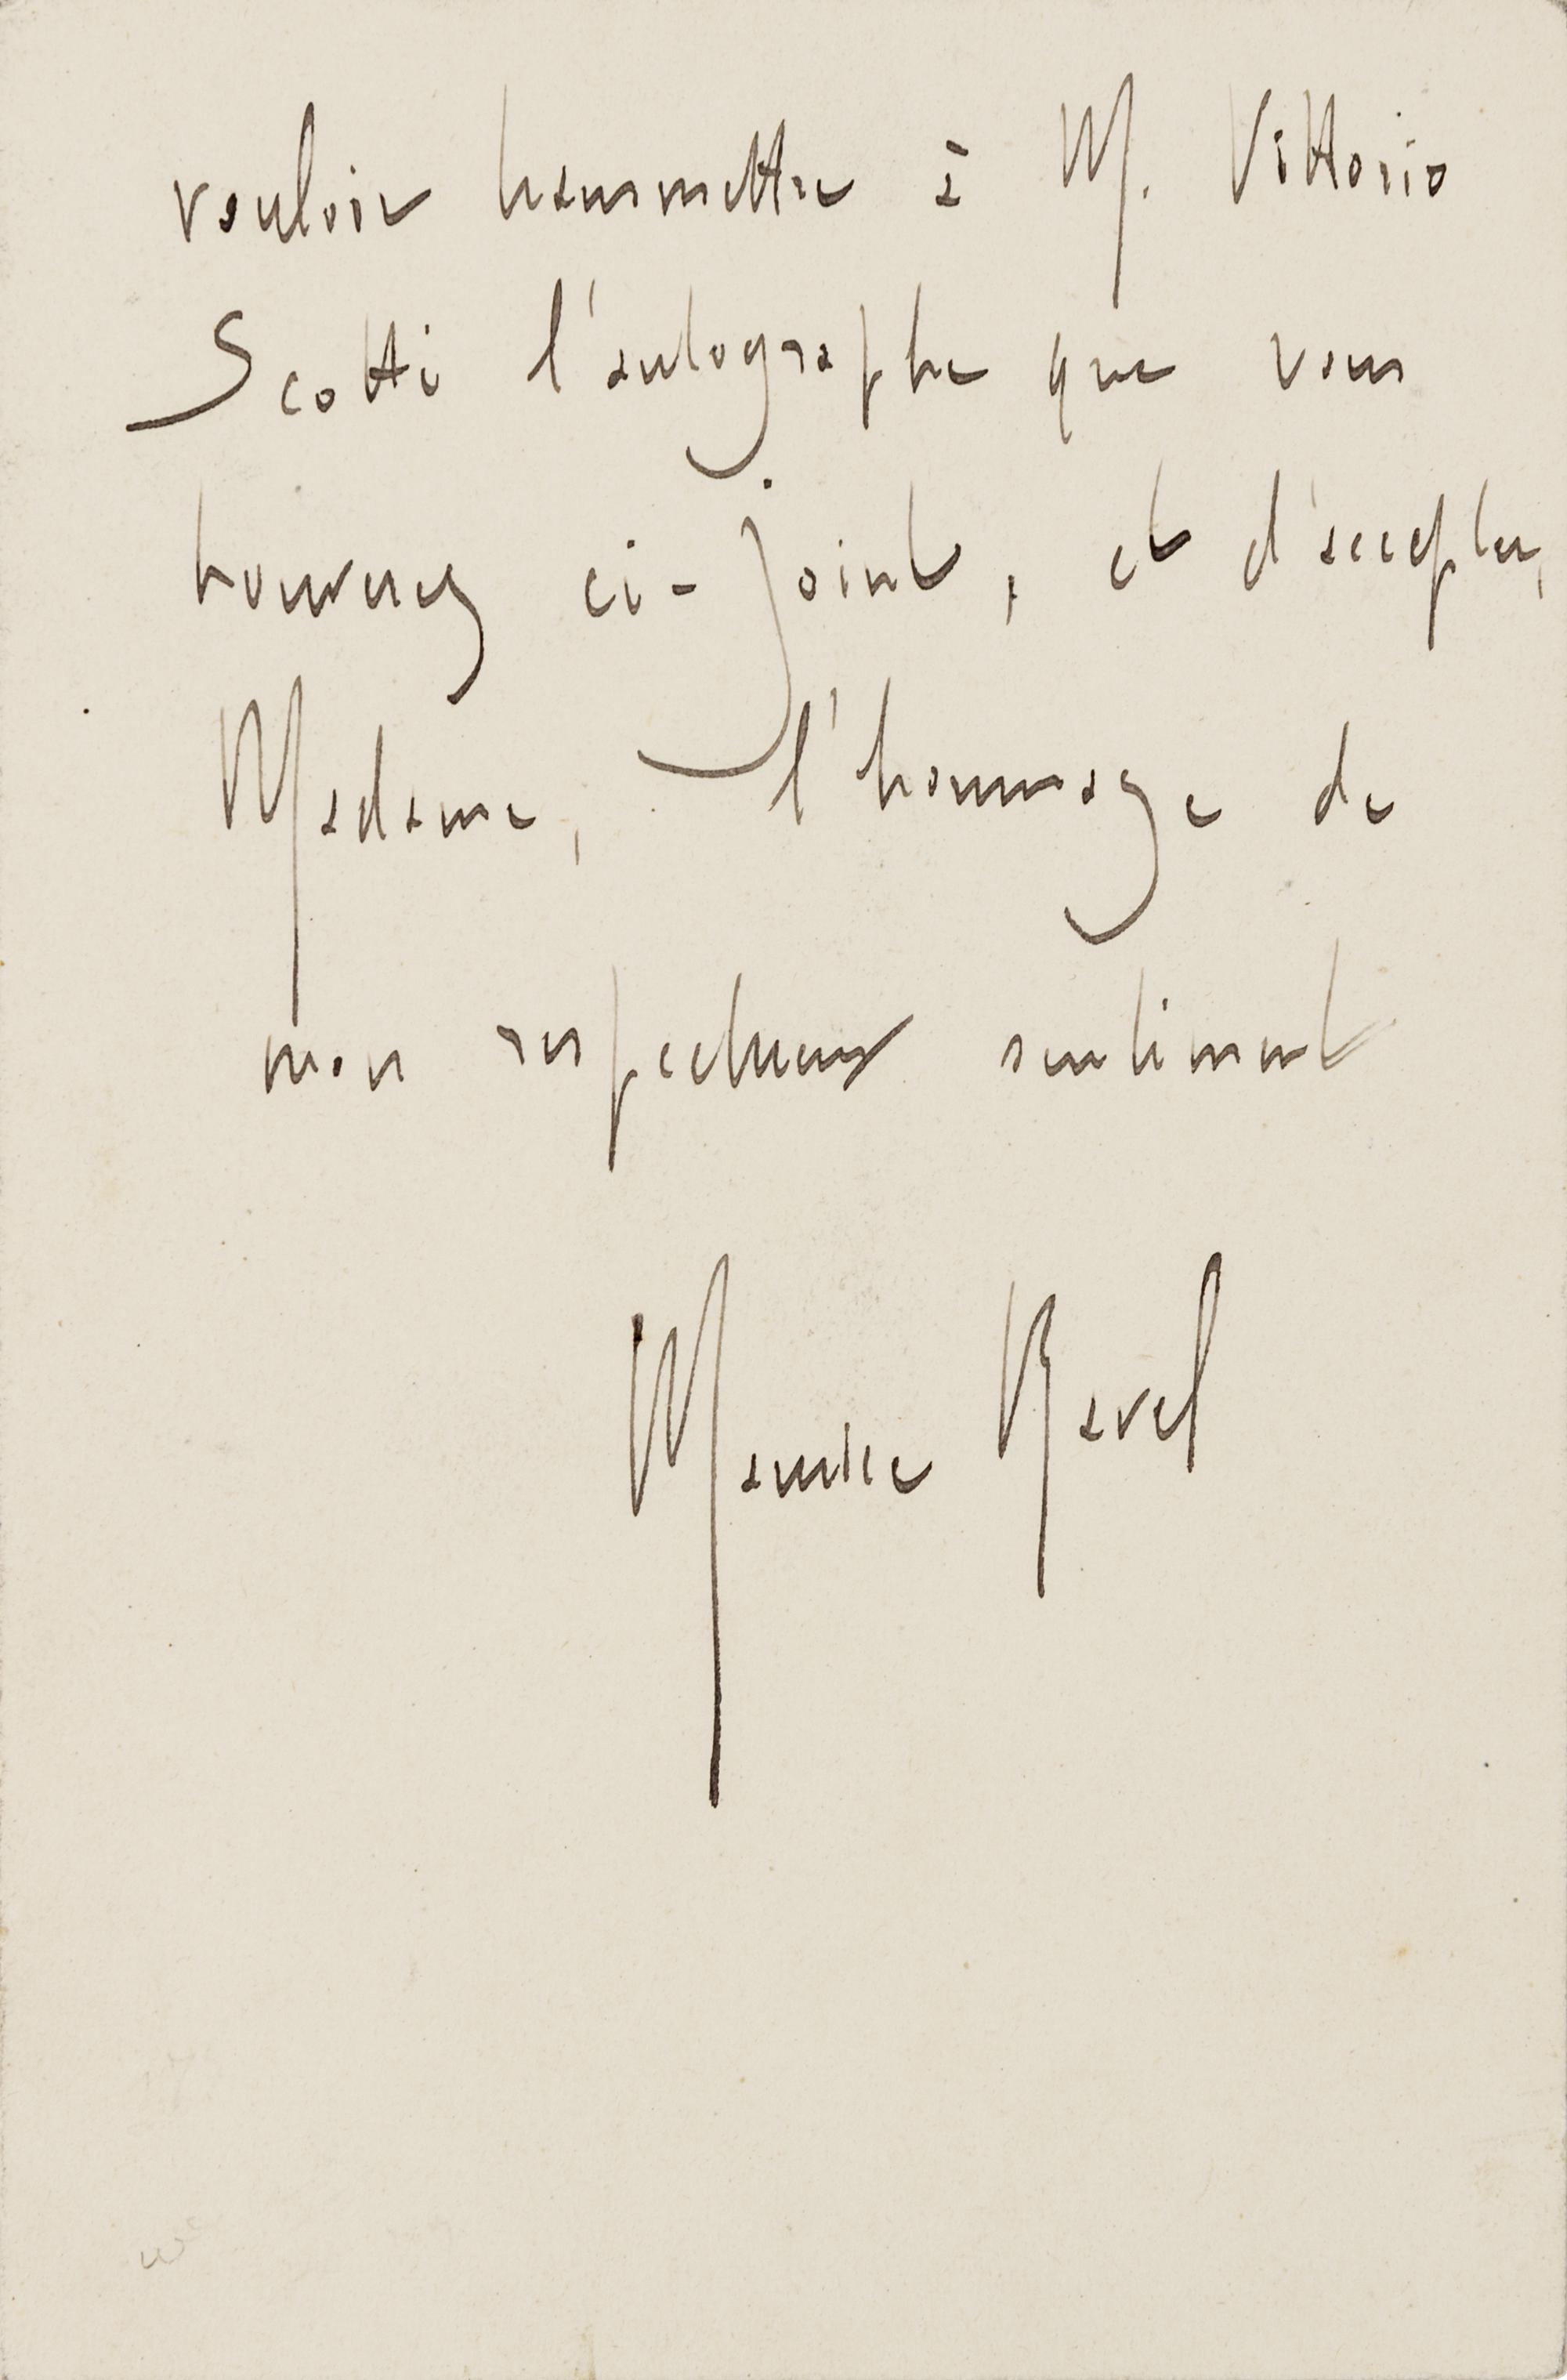 vouloir transmettre à M. Vittorio
Scotti l'autographe que vous
trouverez ci-joint, et d'accepter,
Madame, l'hommage de
mon respectueux sentiment
Maurice Ravel